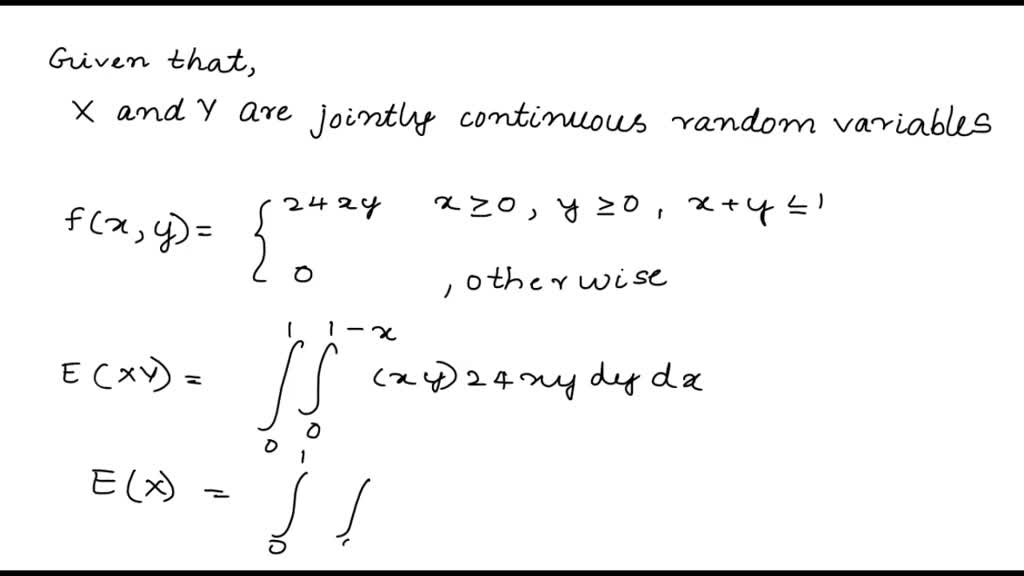 Given that,
X and Y are jointly continuous random variables
f(x,y) = { 24xy x ≥ 0, y ≥ 0, x+y ≤ 1
0 , otherwise
E(XY) = ∫₀¹ ∫₀^{1-x} (xy) 24 xy dy dx
E(x) = ∫₀¹ ∫